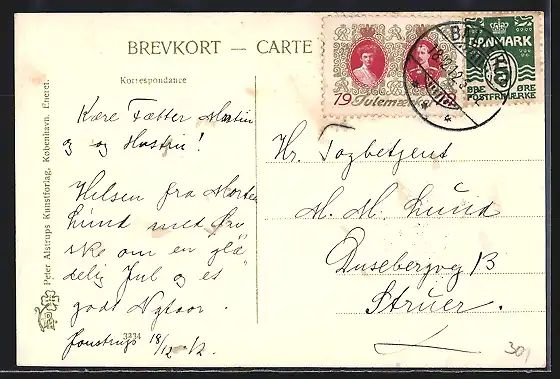 BREVKORT — CARTE
DANMARK
5
ØRE ØRE
POSTFRIMÆRKE
19 Julemærke 12
Korrespondance
Kære Fætter Martin
og Hustru!
Hilsen fra Morten
Lund med Øn-
ske om en glæ-
delig Jul og et
godt Nytaar.
18/12 - 12.
3334
Hr. Togbetjent
M. M. Lund
13
Struer.
301
Peter Alstrups Kunstforlag, Kobenhavn. Eneret.